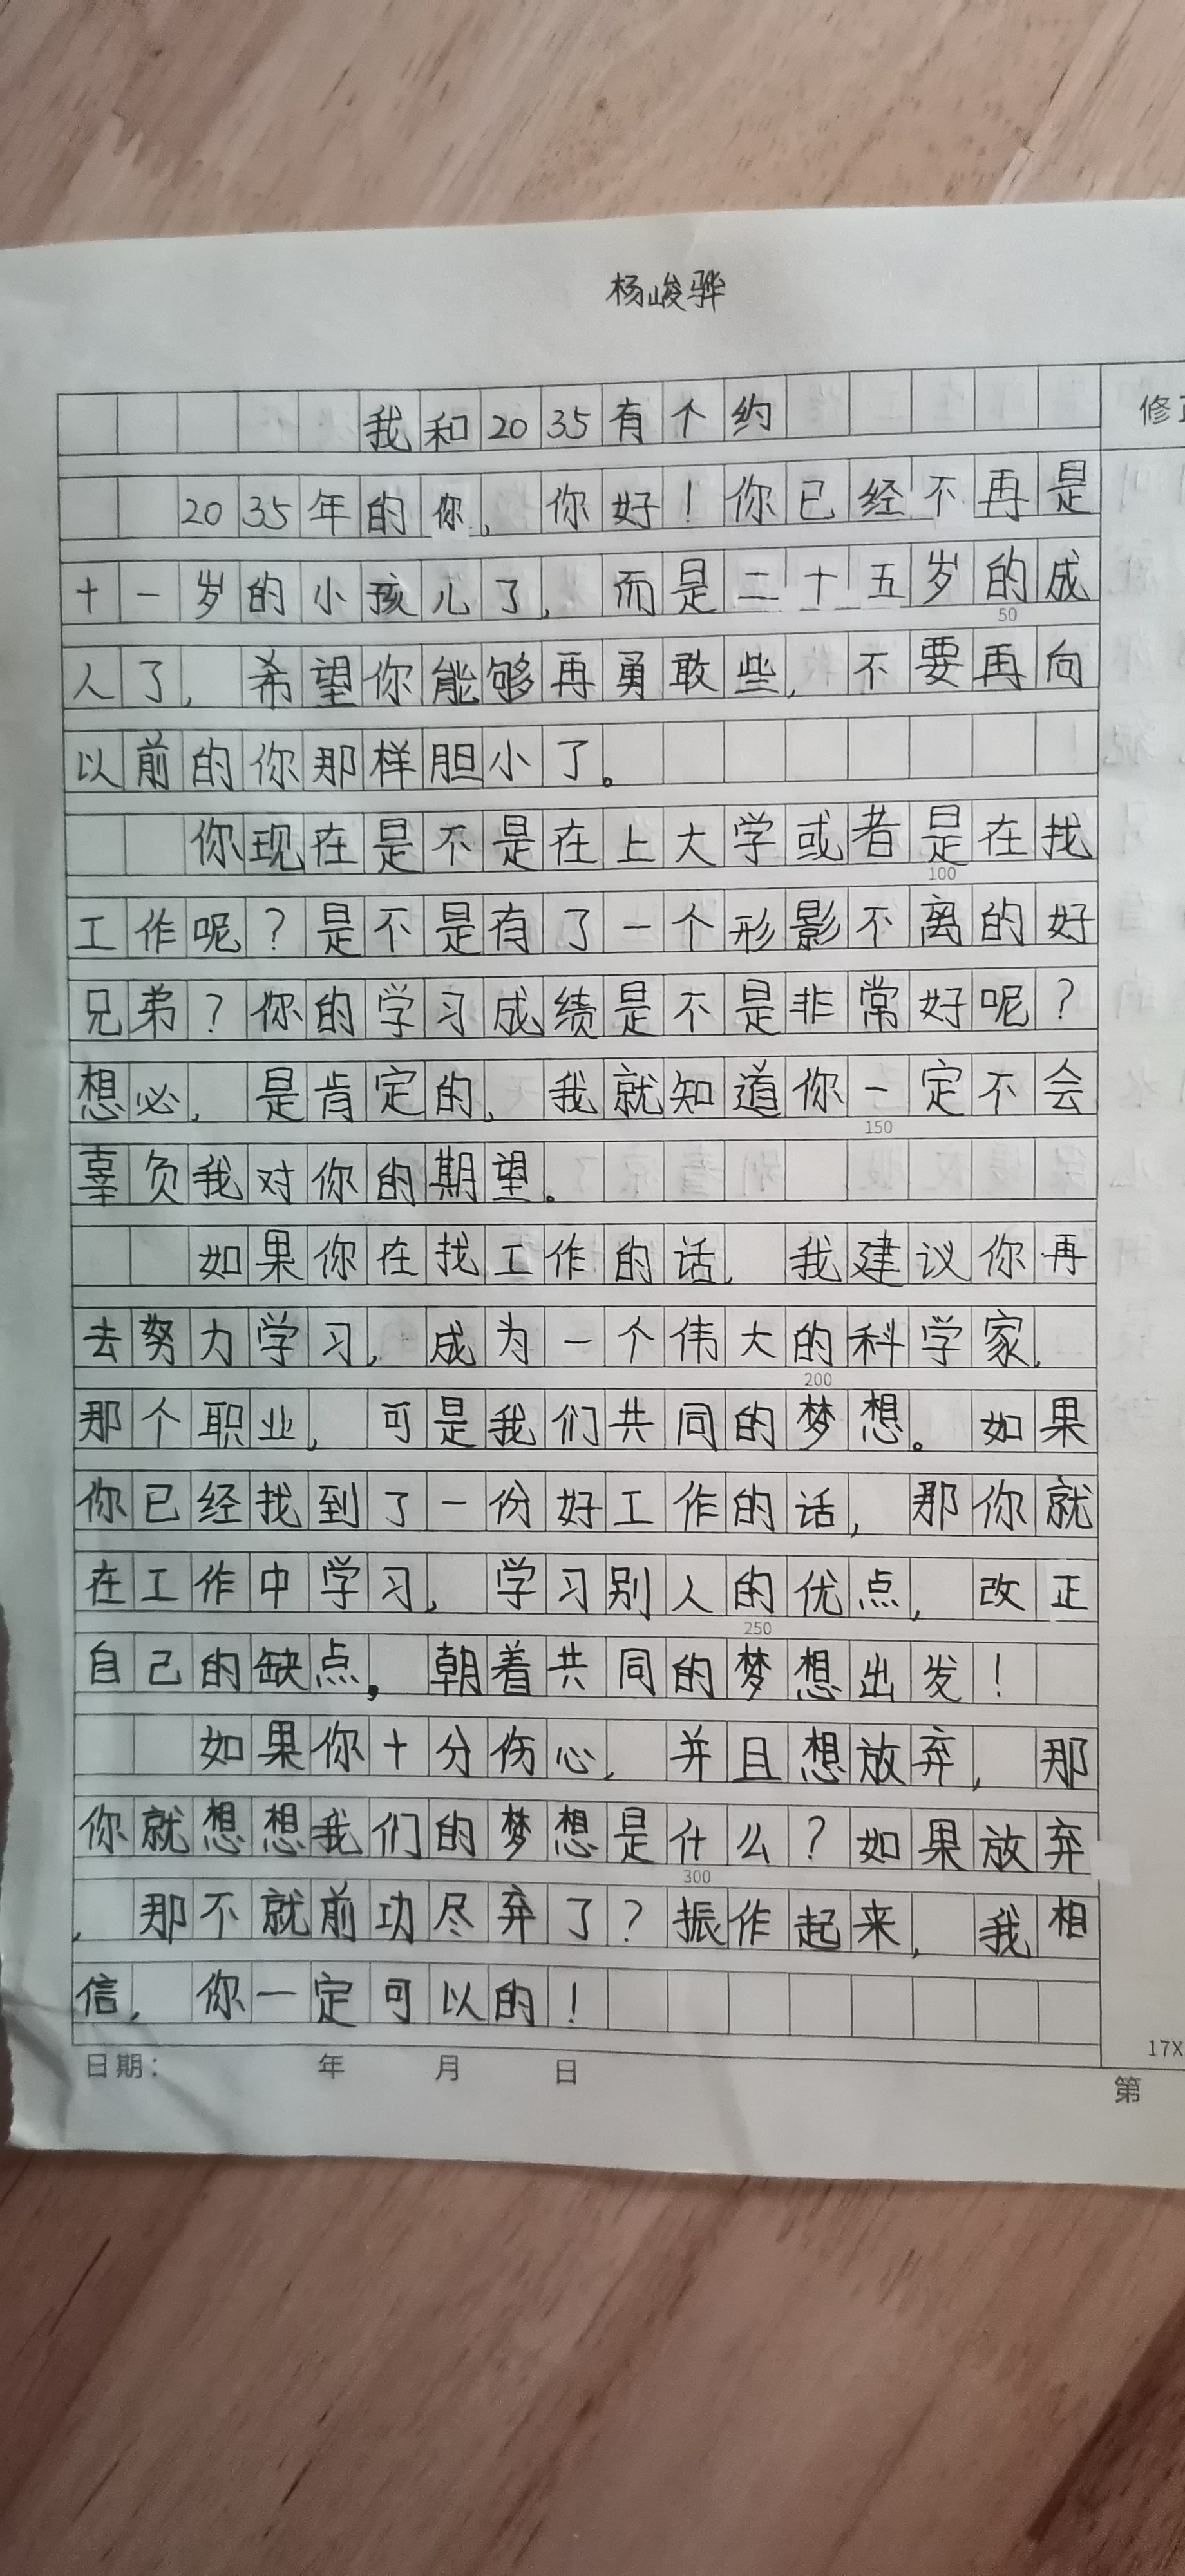 杨峻骅
修
我和2035有个约
2035年的你,你好!你已经不再是
十一岁的小孩儿了,而是二十五岁的成
50
人了,希望你能够再勇敢些,不要再向
以前的你那样胆小了。
你现在是不是在上大学或者是在找
100
工作呢?是不是有了一个形影不离的好
兄弟?你的学习成绩是不是非常好呢?
想必,是肯定的,我就知道你一定不会
150
辜负我对你的期望。
如果你在找工作的话,我建议你再
去努力学习,成为一个伟大的科学家,
200
那个职业,可是我们共同的梦想。如果
你已经找到了一份好工作的话,那你就
在工作中学习,学习别人的优点,改正
250
自己的缺点,朝着共同的梦想出发!
如果你十分伤心,并且想放弃,那
你就想想我们的梦想是什么?如果放弃
300
,那不就前功尽弃了?振作起来,我相
信,你一定可以的!
17X
日期: 年 月 日
第